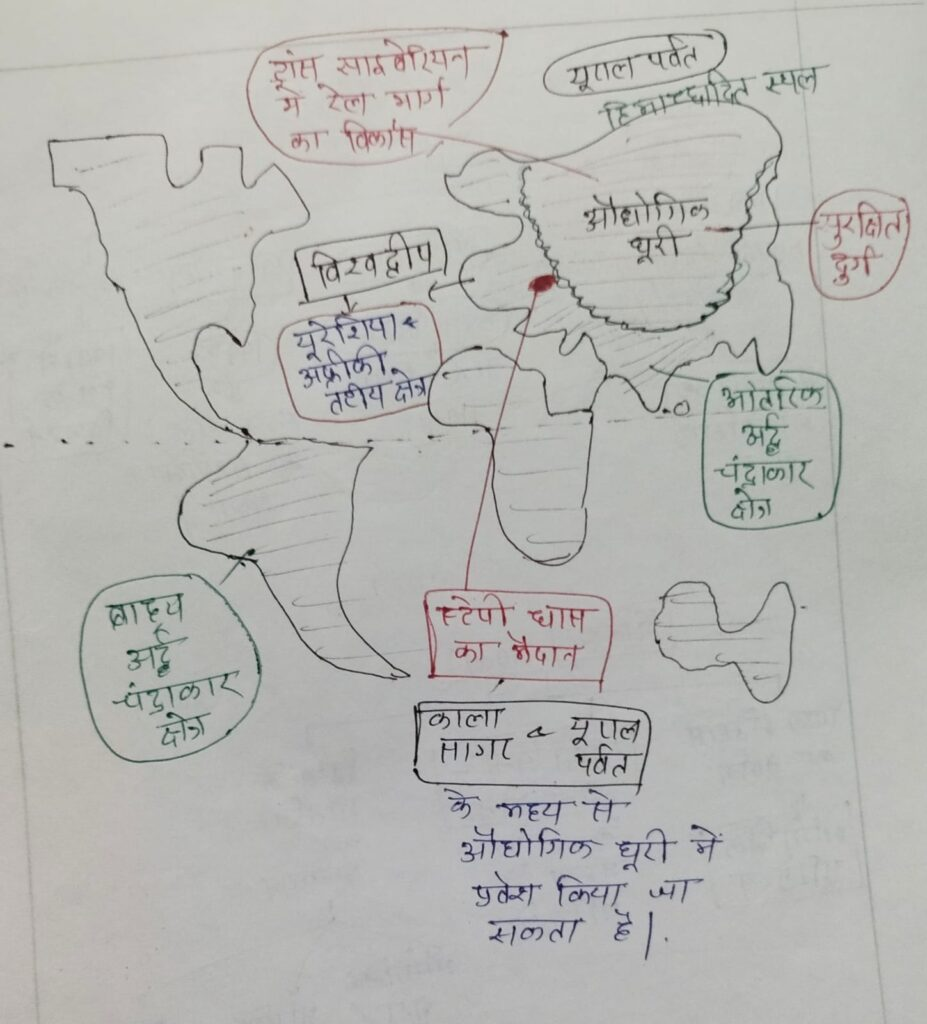 ट्रांस साइबेरियन
में रेल मार्ग
का विकास
यूराल पर्वत
हिमाच्छादित स्थल
औद्योगिक
धूरी
सुरक्षित
दुर्ग
विश्वद्वीप
यूरेशिया &
अफ्रीकी
तटीय क्षेत्र
आंतरिक
अर्द्ध
चंद्राकार
क्षेत्र
बाह्य
अर्द्ध
चंद्राकार
क्षेत्र
स्टेपी घास
का मैदान
काला सागर & यूराल पर्वत
के मध्य से
औद्योगिक धूरी में
प्रवेश किया जा
सकता है।